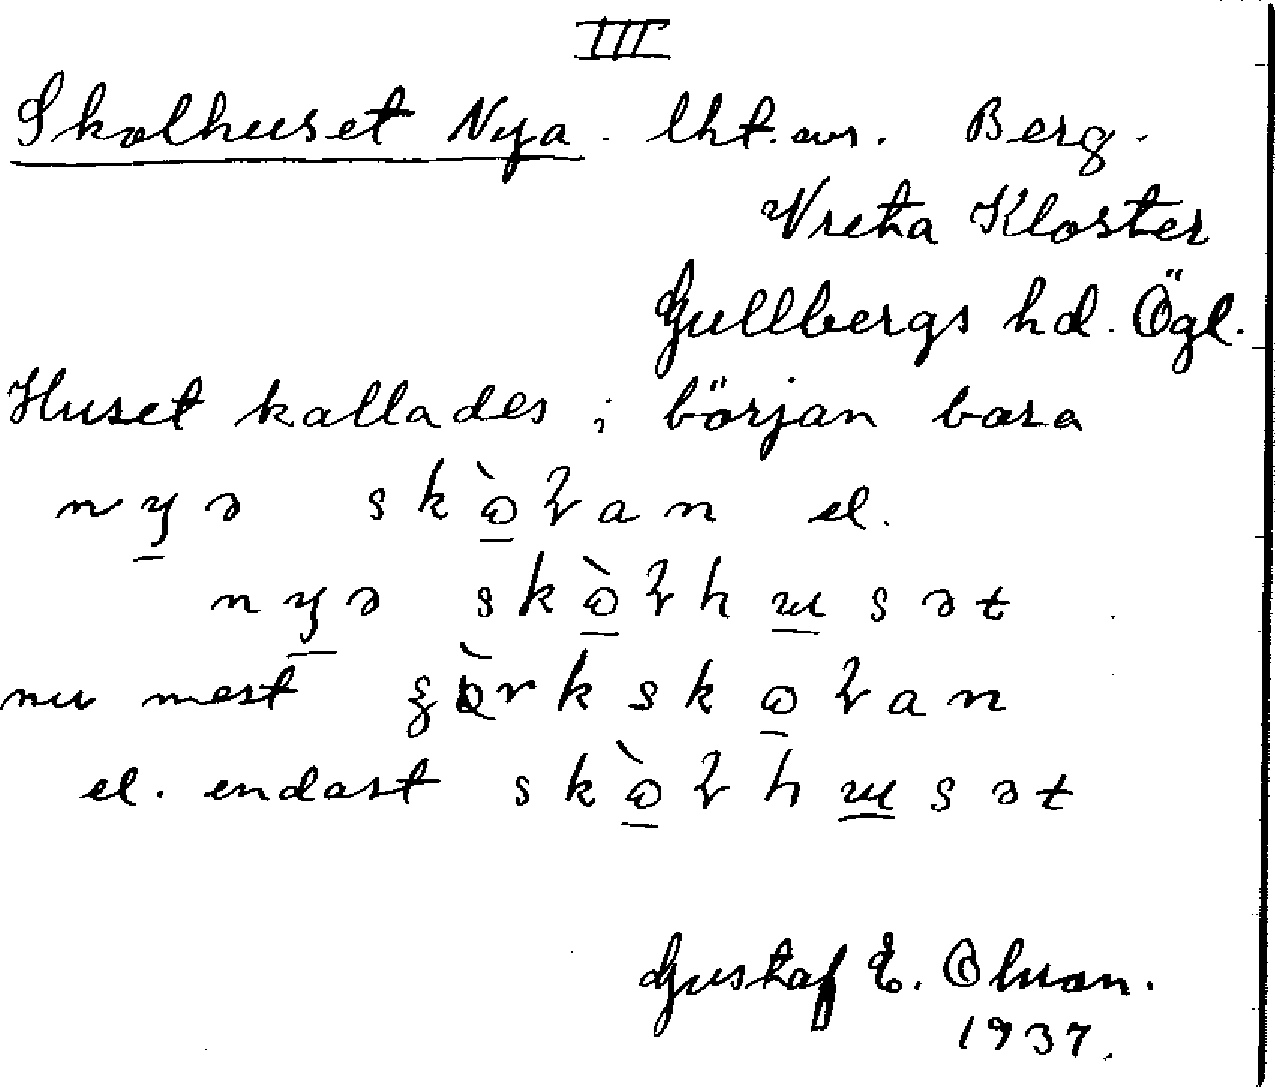 III
Skolhuset Nya. lht. avs. Berg.
Vreta Kloster
Gullbergs hd. Ögl.
Huset kallades i början bara
nyə skò̱ɽan el.
nyə skò̱ɽhusət
nu mest ʂò̱rkskoɽan
el. endast skò̱ɽhusət
Gustaf E. Olsson.
1937.